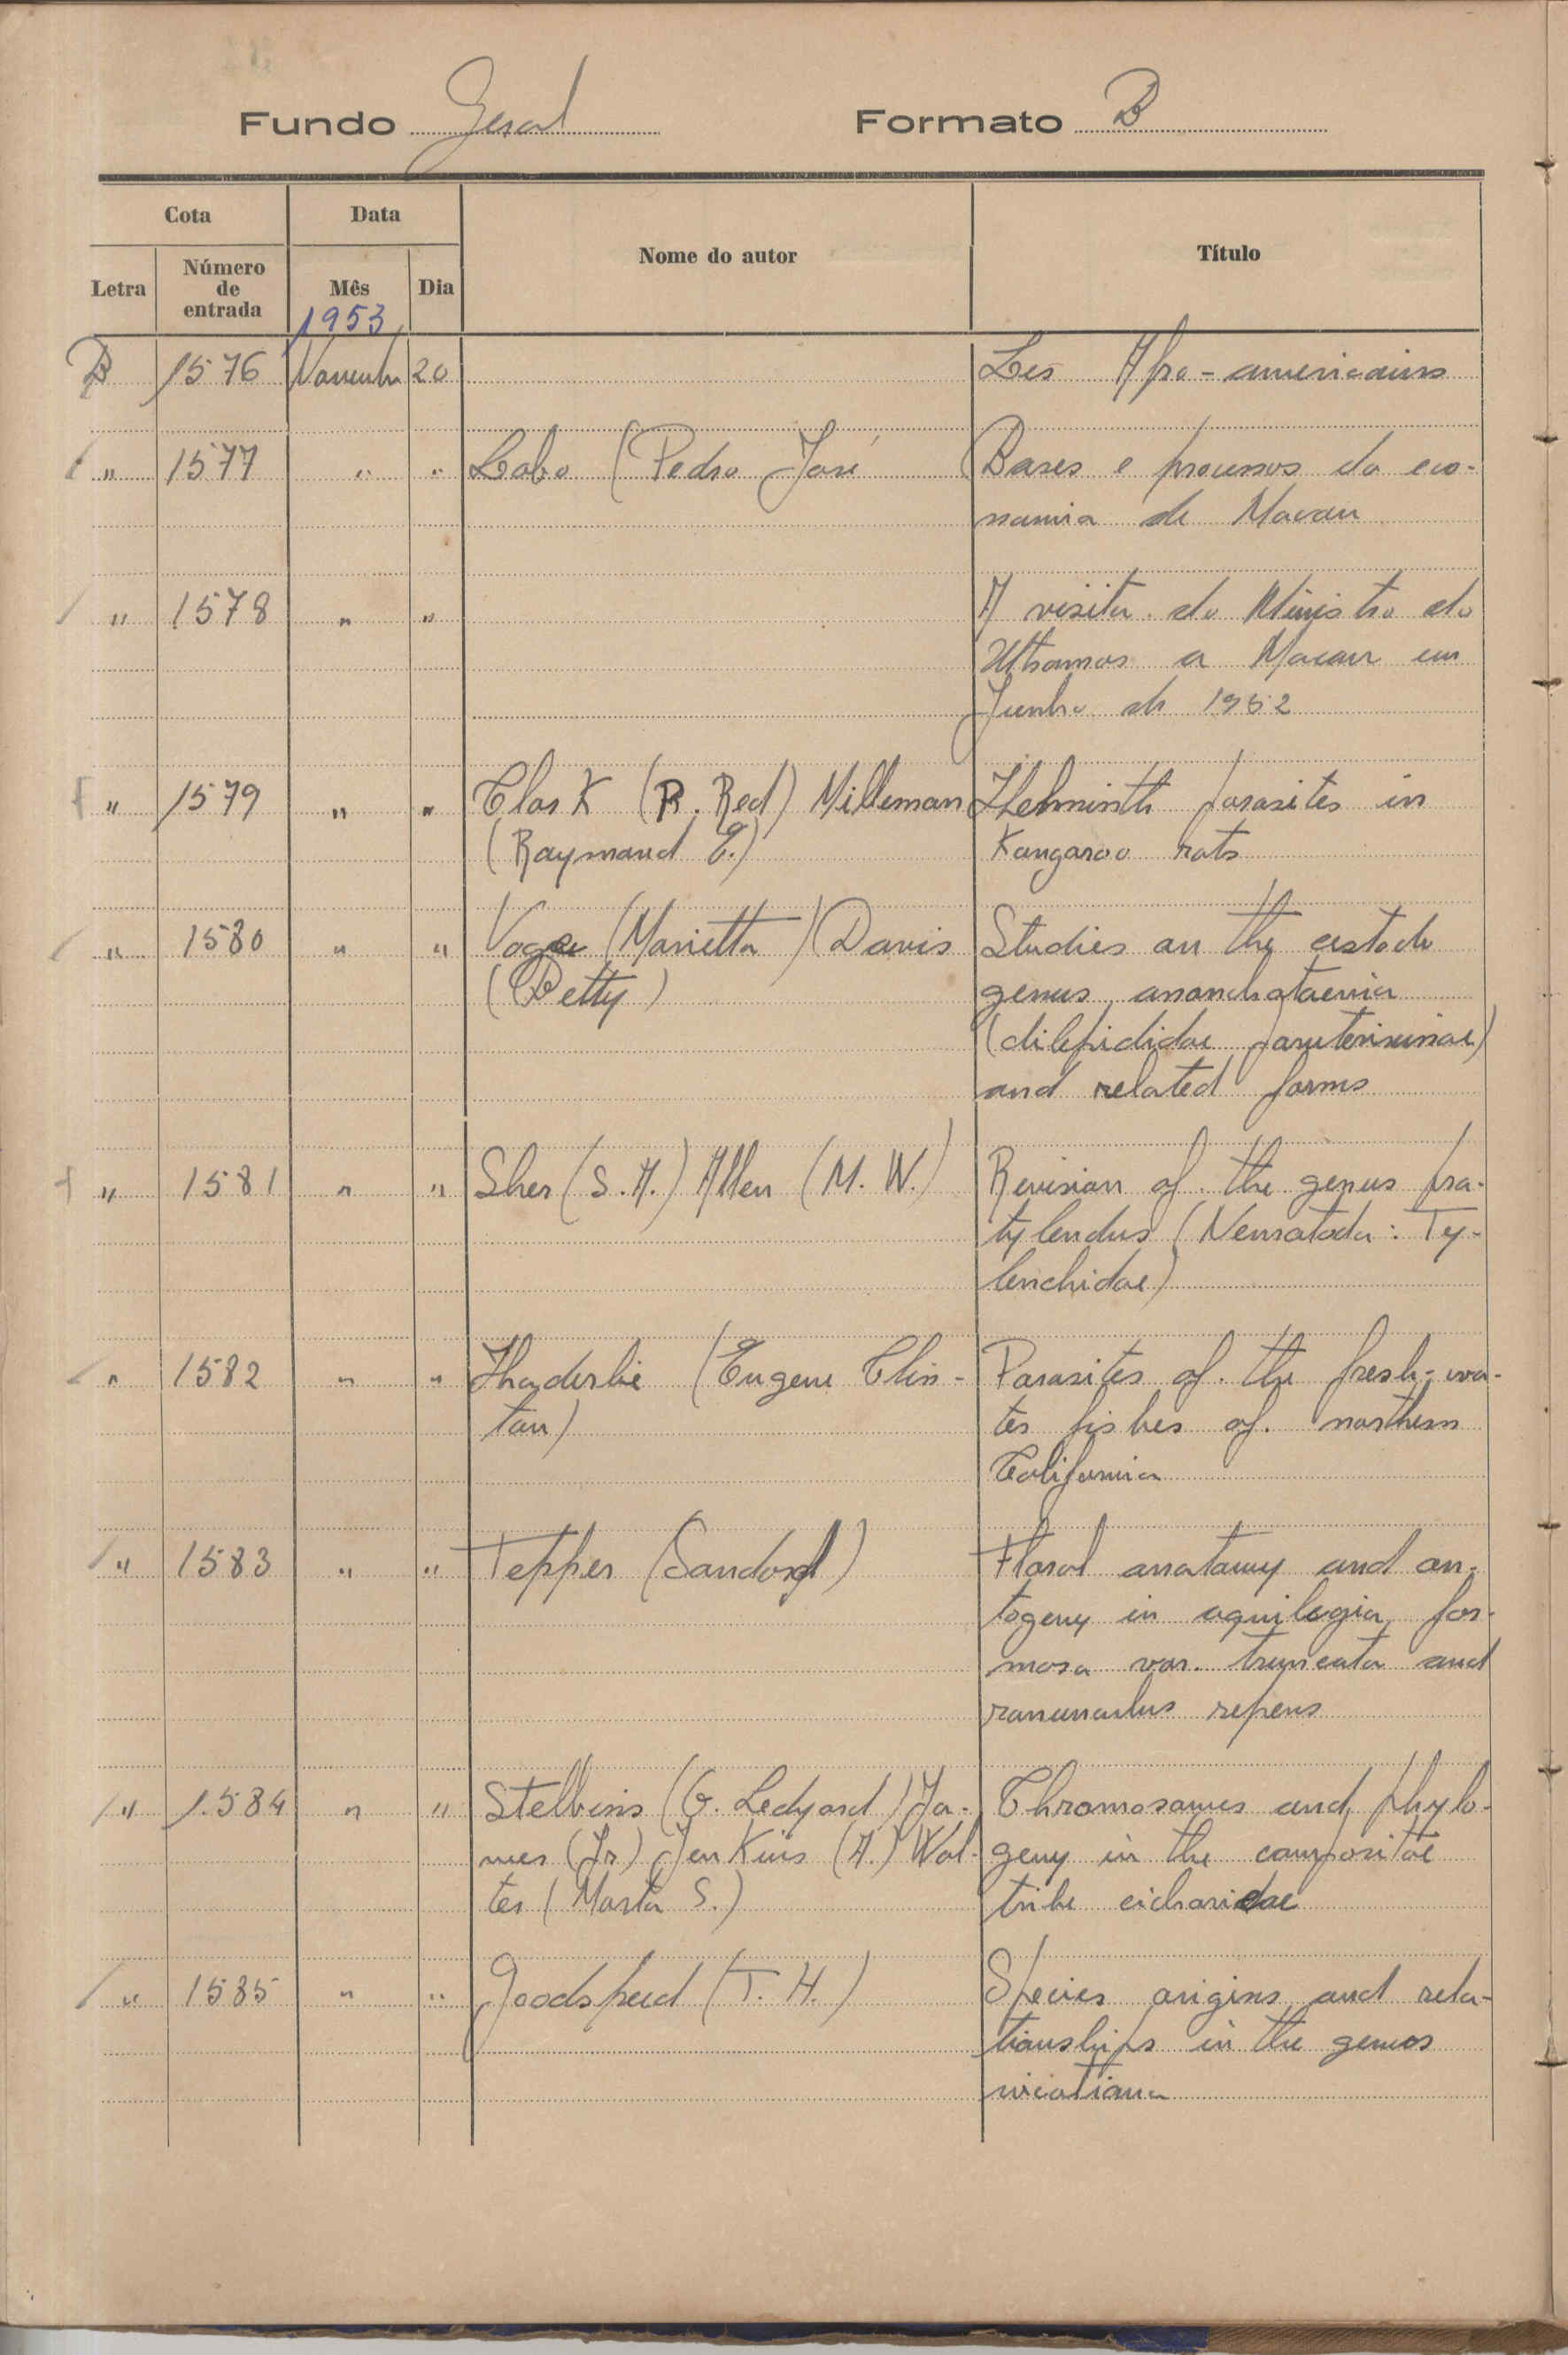 Fundo Geral Formato B
Cota Data Nome do autor Título
Letra Número de entrada Mês Dia
1953
B 1576 Novembro 20 Les Afro-americains
" 1577 " " Lobo (Pedro José Bases e processos da eco-
nomia de Macau
" 1578 " " A visita do Ministro do
Ultramar a Macau em
Junho de 1952
" 1579 " " Clark (R. Red) Milleman Helminth parasites in
(Raymond E.) Kangaroo rats
" 1580 " " Voge (Marietta) (Davis Studies on the cestode
(Betty) genus anonchotaenia
(dilepididae paruterininae)
and related forms
" 1581 " " Sher (S. A.) Allen (M. W.) Revision of the genus pra-
tylendus (Nematoda: Ty-
lenchidae)
" 1582 " " (Eugene Clin- Parasites of the fresh-wa-
ton) ter fishes of northern
California
" 1583 " " Tepper (Sandord) Floral anatomy and on-
togeny in aquilegia for-
mosa var. truncata and
ranunculus repens
" 1584 " " Stelbins (G. Ledyard) Ja- Chromosomes and phylo-
mes (Jr) Jenkins (A.) Wal- geny in the compositae
ter (Marta S.) tribe
" 1585 " " Goodspeed (T. H.) Species origins and rela-
tionships in the genus
nicotiana